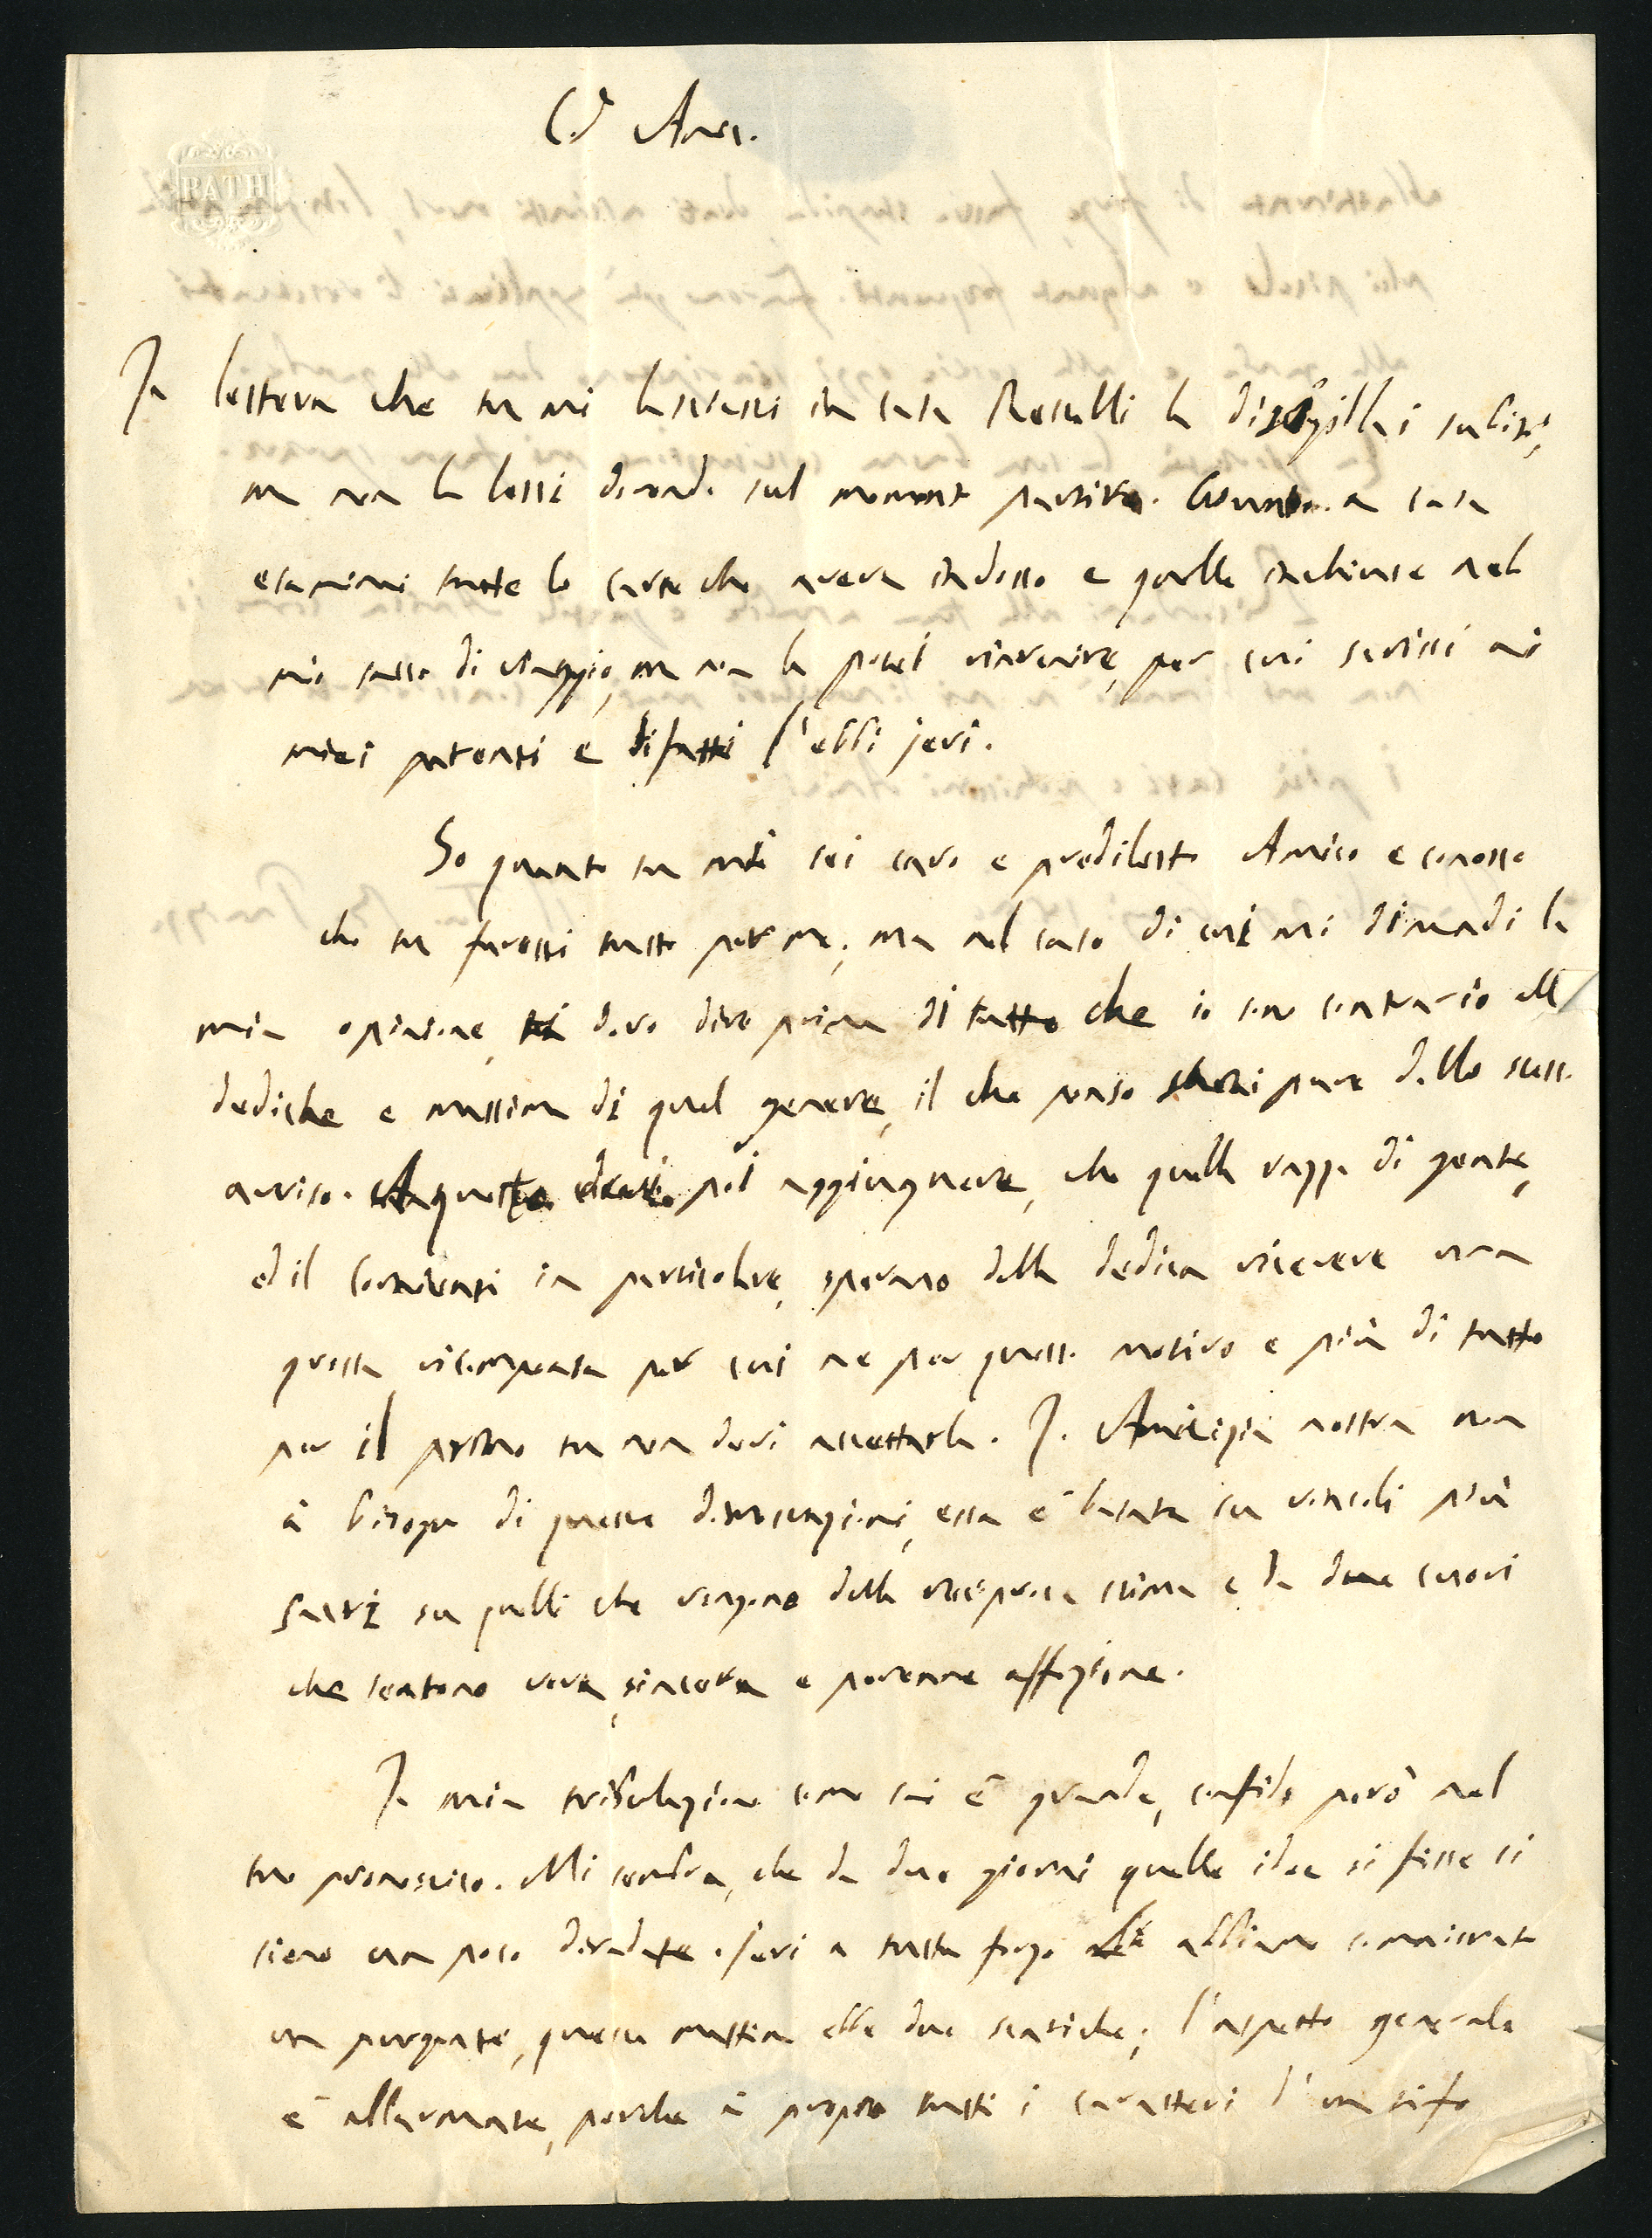 C.o Amico.
BATH
La lettera che tu mi lasciasti in casa Restelli la disigillai subito,
ma non la lessi dovendo sul momento partire. Giunto a casa
esaminai tutte le carte che aveva indosso e quelle inchiuse nel
mio sacco di viaggio, ma non la potei rinvenire, per cui scrissi ai
miei parenti e difatti l'ebbi jeri.
So quanto tu mi sei caro e prediletto Amico e conosco
che tu faressi tutto per me; ma nel caso di cui mi dimandi la
mia opinione, ti devo dire prima di tutto che io sono contrario alle
dediche e massima di quel genere, il che penso sarai pure dello stesso
avviso. A questo devo poi aggiungnere, che quella razza di gente,
ed il in particolare, sperano dalla dedica ricevere una
grossa ricompensa per cui ne per questo motivo e più di tutto
per il primo tu non devi accettarla. La Amicizia nostra non
à bisogno di queste dimostrazioni, essa è basata su vincoli più
sacri su quelli che vengono dalla reciproca stima e da due cuori
che sentono vera, sincera e perenne affezione.
La mia tribulazione come sai è grande, confido però nel
tuo pronostico. Mi sembra, che da due giorni quelle idee sì fisse si
sieno un poco diradate. Jeri a tutta forza le abbiamo somministrato
un purgante, questa mattina ebbe due scariche; l'aspetto generale
è allarmante, perche à proprio tutti i caratteri d'un tifo